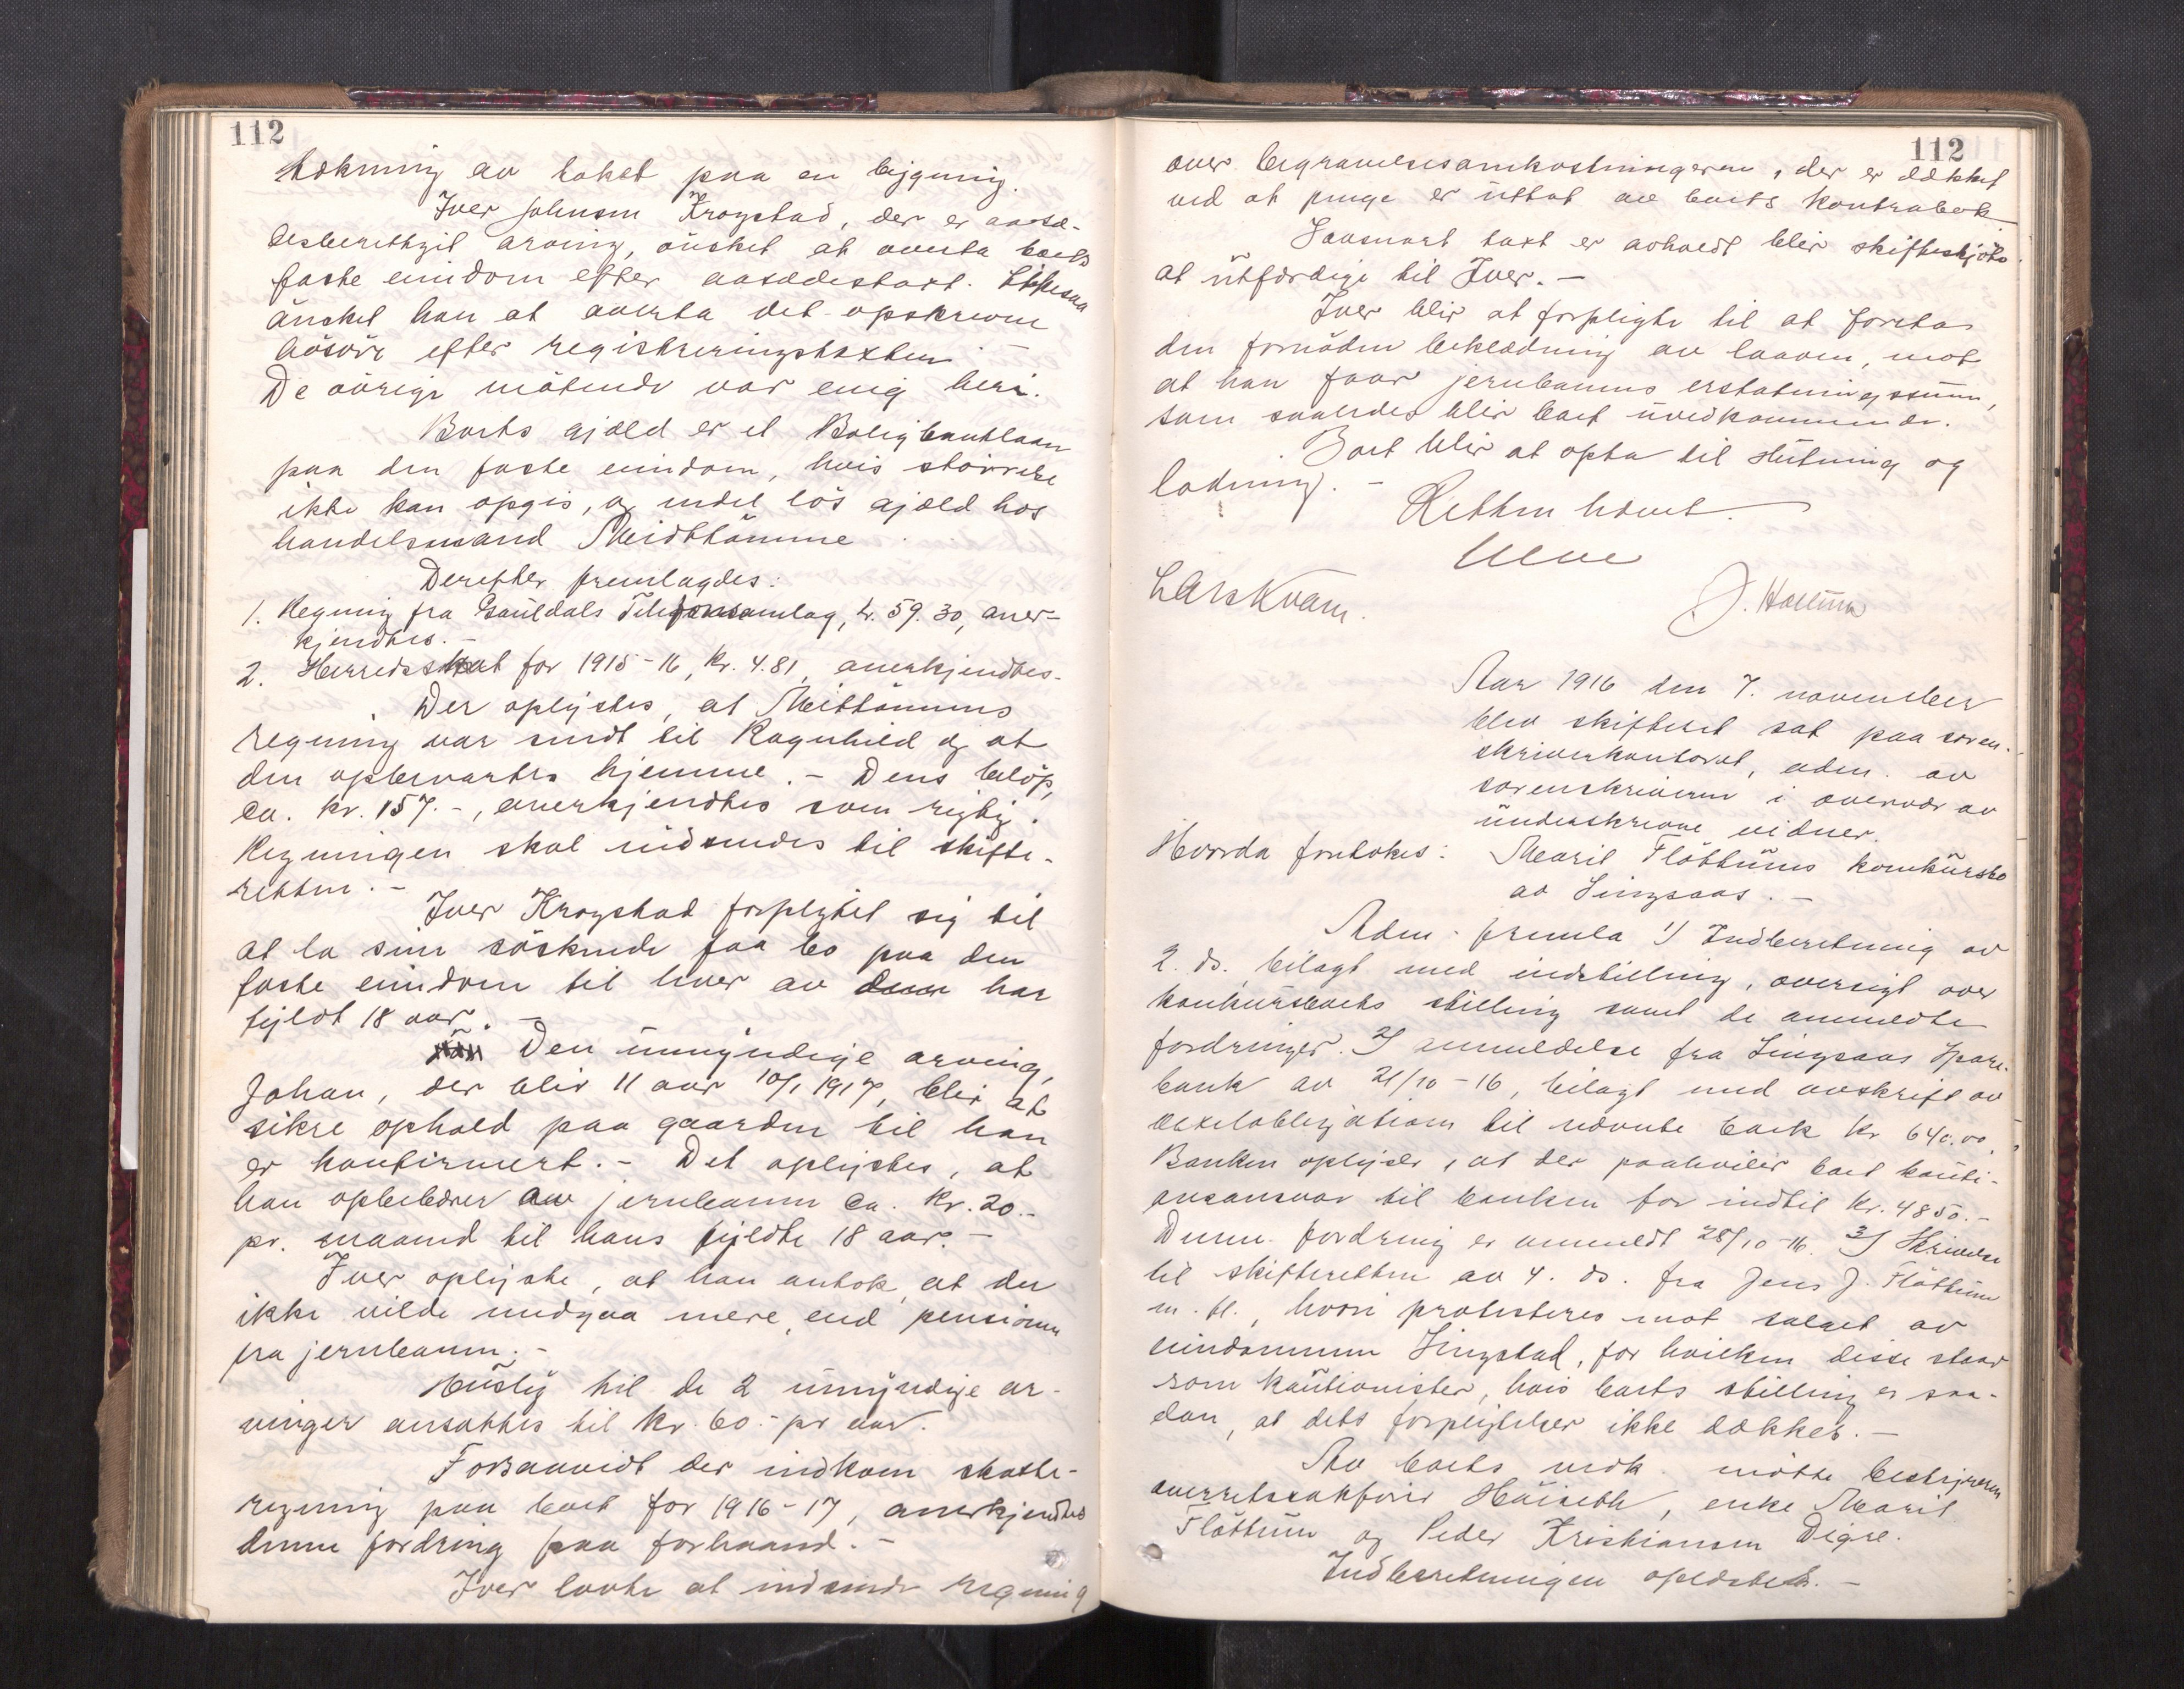 112
tækning av taket paa en bygning.
Iver Johnsen Krogstad, der er aasæ-
desberettiget arving, önsket at overta boets
faste eiendom efter aasædestaxt. Likesaa
önsket han at overta det opskrevne
bösöre efter registreringstaxten. –
De övrige mötende var enig heri.
Boets gjæld er et Boligbanklaan
paa den faste eiendom, hvis störrelse
ikke kan opgis, og endel lös gjæld hos
handelsmand Midttömme
Derefter fremlagdes:
1. Regning fra Gauldals Telefonsamlag, kr. 59.30, aner-
kjendtes. –
2. Herredsskat for 1915-16, kr. 4.81, anerkjendtes.
Der oplystes, at Midttömmes
regning var sendt til Ragnhild og at
den opbevartes hjemme. – Dens belöp,
ca. kr. 157.-, anerkjendtes som rigtig.
Regningen skal indsendes til skifte-
retten. –
Iver Krogstad forpligtet sig til
at la sine söskende faa bo paa den
faste eiendom til hver av dem har
fyldt 18 aar. –
Den umyndige arving,
Johan, der blir 11 aar 10/1 1917, blir at
sikre ophold paa gaarden til han
er konfirmert. – Det oplystes, at
han oppebærer av jernbanen ca. kr. 20.-
pr. maaned til hans fyldte 18 aar. –
Iver oplyste, at han antok, at der
ikke vilde medgaa mere, end pensionen
fra jernbanen. –
Husly til de 2 umyndige ar-
vinger ansattes til kr. 60.- pr aar.
Forsaavidt der indkom skatte-
regning paa boet for 1916-17, anerkjendtes
denne fordring paa forhaand. –
Iver lovte at indsende regning
112
over begravelsesomkostningerne, der er dækket
ved at penge er uttat av boets kontrabok
Saasnart taxt er avholdt blir skifteskjöte
at utfærdige til Iver. –
Iver blir at forpligte til at foreta
den fornödne beklædning av laaven, mot
at han faar jernbanens erstatningssum,
som saaledes blir boet uvedkommende.
Boet blir at opta til slutning og
lodning. –
Retten hævet.
Lars Kvam.
Aar 1916 den 7. november
blev skifteret sat paa soren-
skriverkontoret, adm. av
sorenskriveren i overvær av
underskrevne vidner.
Hvorda foretokes: Marit Flöttums konkursbo
av Singsaas. –
Adm. fremla 1) Indberetning av
2. ds. bilagt med indstilling, oversigt over
konkursboets stilling samt de anmeldte
fordringer. 2) anmeldelse fra Singsaas Spare-
bank av 21/10-16, bilagt med avskrift av
vexelobligationen til nævnte bank kr 640.00,
Banken oplyser, at der paahviler boet kauti-
onsansvar til banken for indtil kr. 4850.-
Denne fordring er anmeldt 28/10-16. 3) Skrivelse
til skifteretten av 4. ds. fra Jens J. Flöttum
m. fl., hvori protesteres mot salget av
eiendommen Singstad, for hvilken disse staar
som kautionister, hvis boets stilling er saa-
dan, at dets forpligtelser ikke dækkes. –
Av boets vedk. mötte bestyreren
overretssakförer Höiseth, enke Marit
Flöttum og Peder Kristiansen Digre.
Indberetningen oplæstes. –